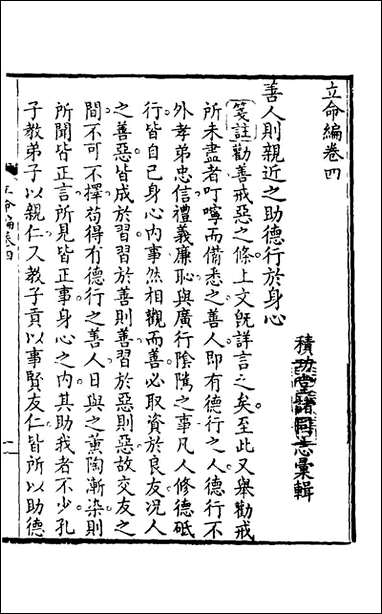 立命編卷四
積功堂諸同志彙輯
善人則親近之助德行於身心
箋註勸善戒惡之條上文既詳言之矣至此又舉勸戒
所未盡者叮嚀而備悉之善人即有德行之人德行不
外孝弟忠信禮義廉恥與廣行陰隲之事凡人修德砥
行皆自己身心內事然相觀而善必取資於良友況人
之善惡皆成於習習於善則善習於惡則惡故交友之
間不可不擇苟得有德行之善人日與之薰陶漸染則
所聞皆正言所見皆正事身心之內其助我者不少孔
子教弟子以親仁又教子貢以事賢友仁皆所以助德
立命編卷四
一